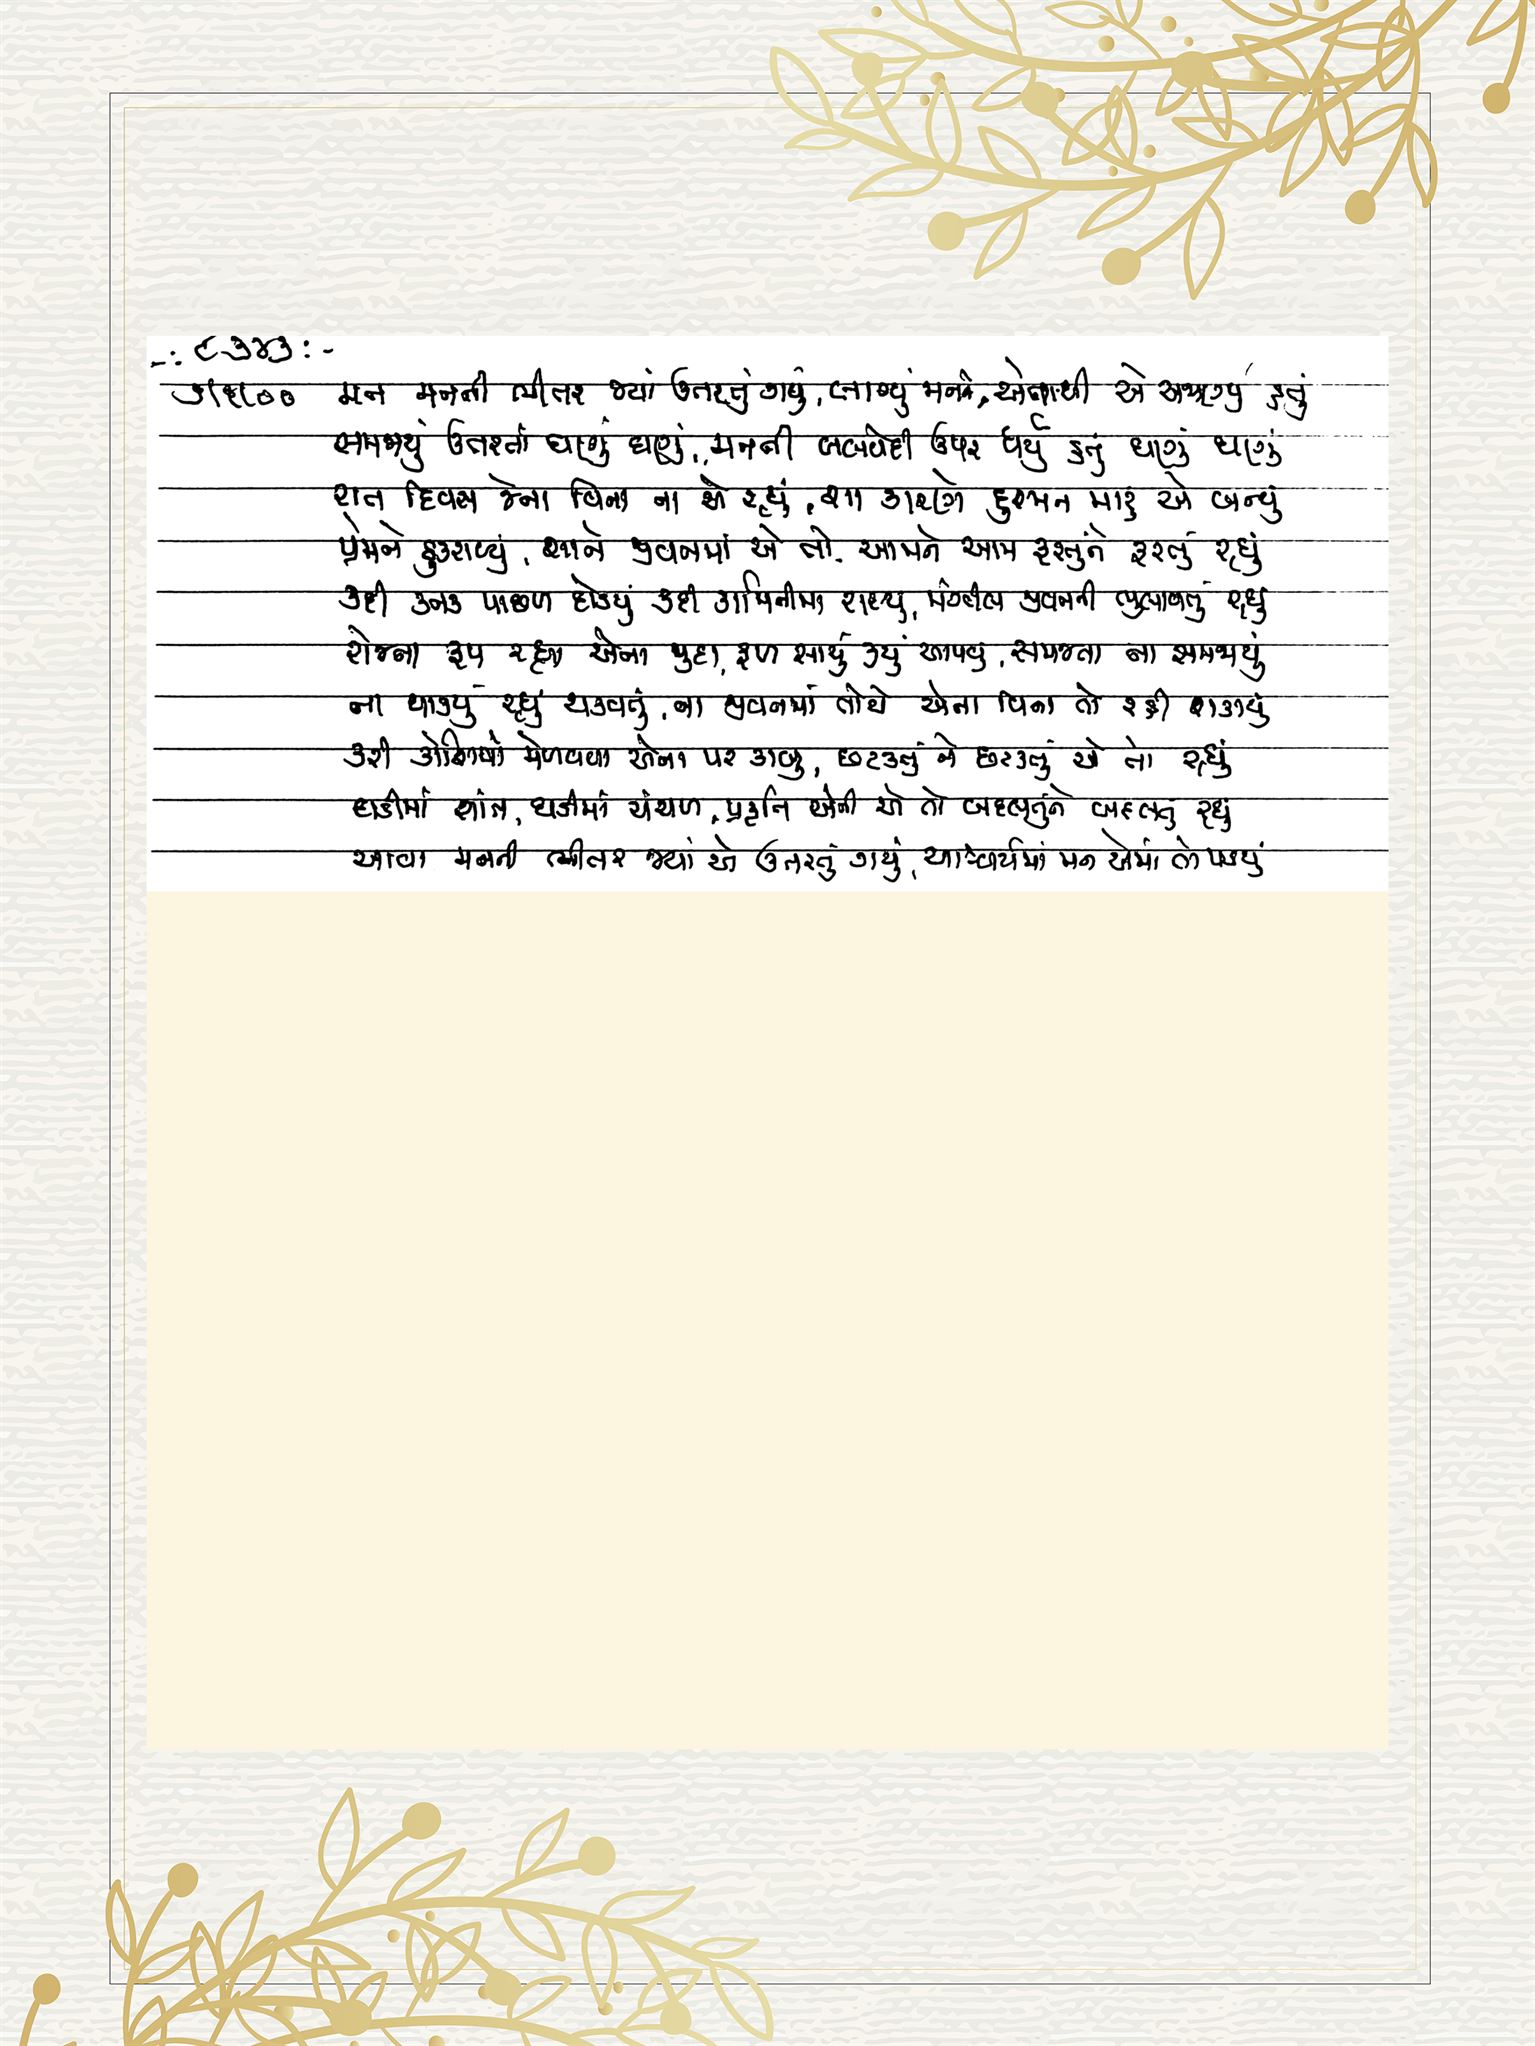 -: ૮૭૪૭ :-
મન મનની ભીતર જ્યાં ઉતરતું ગયું, લાગ્યું મનને, એનાથી એ અજાણ્યું હતું
સમજાયું ઉતરતાં ઘણું ઘણું, મનની બલિવેદી ઉપર ધર્યું હતું ઘણું ઘણું
રાત દિવસ જેના વિના ના એ રહ્યું, શા કારણે દુશ્મન મારું એ બન્યું
પ્રેમને ઠુકરાવ્યું, શાને જીવનમાં એ તો આમને આમ ફરતુંને ફરતું રહ્યું
કદી કનક પાછળ દોડયું કદી કામિનીમાં રાચ્યું, મંઝીલ જીવનની ભુલાવતું રહ્યું
રોજના રૂપ રહ્યા એના જુદા, ફળ સાચું કયું આપવું, સમજતા ના સમજાયું
ના થાક્યું રહ્યું થકવતું, ના જીવનમાં તોયે એના વિના તો રહી શકાયું
કરી કોશિષો મેળવવા એના પર કાબુ, છટકતું ને છટકતું એ તો રહ્યું
ઘડીમાં શાંત, ઘડીમાં ચંચળ, પ્રકૃતિ એની એ તો બદલતુંને બદલતું રહ્યું
આવા મનની ભીતર જ્યાં એ ઉતરતું ગયું, આશ્ચર્યમાં મન એમાં તો પડયું